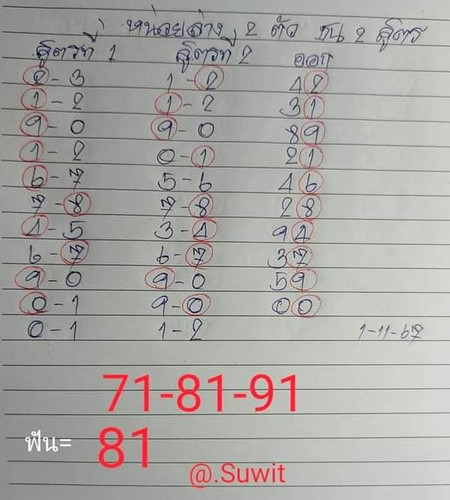 หน่วยล่าง 2 ตัว ชน 2 สูตร
สูตรที่ 1 สูตรที่ 2 ออก
2-3 1-2 42
1-2 1-2 31
9-0 9-0 89
1-2 0-1 21
6-7 5-6 46
7-8 7-8 28
4-5 3-4 94
6-7 6-7 37
9-0 9-0 59
0-1 9-0 00
0-1 1-2 1-11-67
71-81-91
ฟัน= 81
@.Suwit